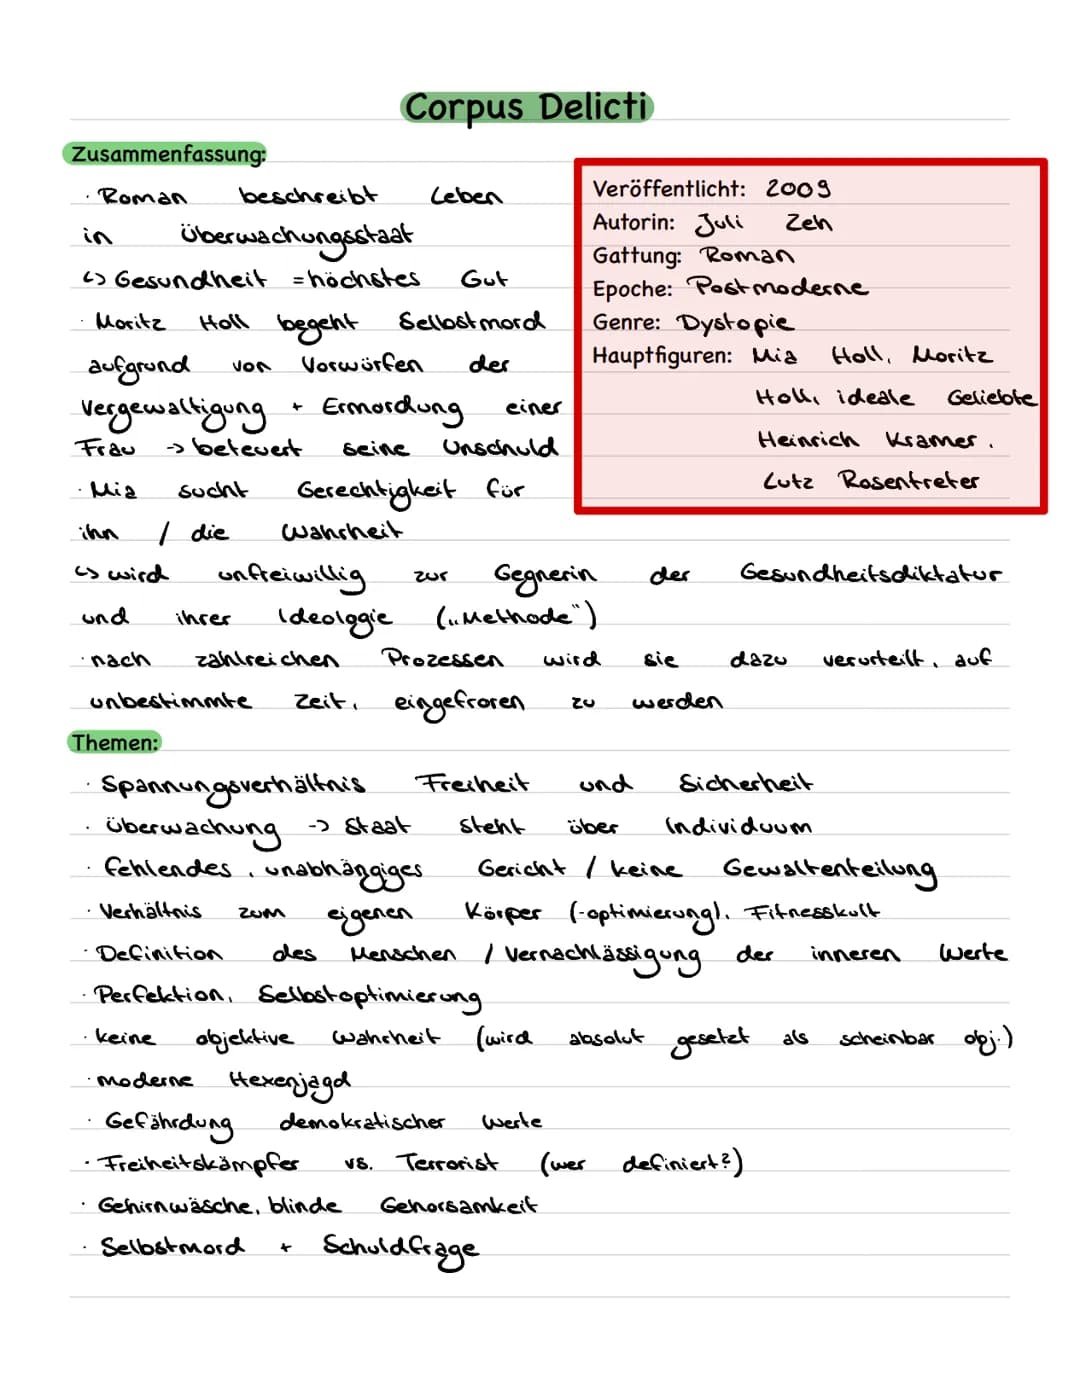 Corpus Delicti
Zusammenfassung:
· Roman beschreibt Leben
in Überwachungsstaat
↳ Gesundheit = höchstes Gut
· Moritz Holl begeht Selbstmord
aufgrund von Vorwürfen der
Vergewaltigung + Ermordung einer
Frau -> beteuert seine Unschuld
· Mia sucht Gerechtigkeit für
ihn / die Wahrheit
↳ wird unfreiwillig zur Gegnerin der Gesundheitsdiktatur
und ihrer Ideologie („Methode“)
· nach zahlreichen Prozessen wird sie dazu verurteilt, auf
unbestimmte Zeit, eingefroren zu werden
Veröffentlicht: 2009
Autorin: Juli Zeh
Gattung: Roman
Epoche: Postmoderne
Genre: Dystopie
Hauptfiguren: Mia Holl, Moritz
Holl, ideale Geliebte
Heinrich Kramer,
Lutz Rosentreter
Themen:
· Spannungsverhältnis Freiheit und Sicherheit
· Überwachung -> Staat steht über Individuum
· fehlendes, unabhängiges Gericht / keine Gewaltenteilung
· Verhältnis zum eigenen Körper (-optimierung), Fitnesskult
· Definition des Menschen / Vernachlässigung der inneren Werte
· Perfektion, Selbstoptimierung
· keine objektive Wahrheit (wird absolut gesetzt als scheinbar obj.)
· moderne Hexenjagd
· Gefährdung demokratischer Werte
· Freiheitskämpfer vs. Terrorist (wer definiert?)
· Gehirnwäsche, blinde Gehorsamkeit
· Selbstmord + Schuldfrage